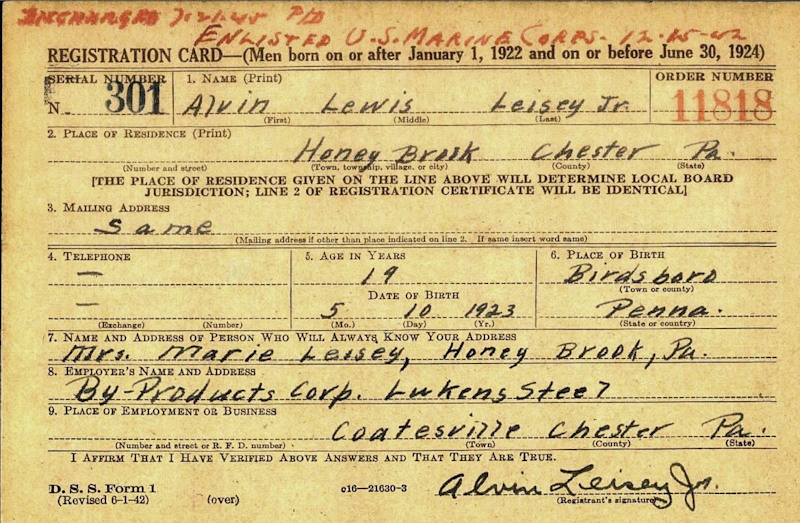 DISCHARGED 7-21-45 P/D
ENLISTED U.S. MARINE CORPS- 12-15-42
REGISTRATION CARD—(Men born on or after January 1, 1922 and on or before June 30, 1924)
SERIAL NUMBER 1. NAME (Print) ORDER NUMBER
N- 301 Alvin Lewis Leisey Jr. 11818
(First) (Middle) (Last)
2. PLACE OF RESIDENCE (Print)
Honey Brook Chester Pa.
(Number and street) (Town, township, village, or city) (County) (State)
[THE PLACE OF RESIDENCE GIVEN ON THE LINE ABOVE WILL DETERMINE LOCAL BOARD
JURISDICTION; LINE 2 OF REGISTRATION CERTIFICATE WILL BE IDENTICAL]
3. MAILING ADDRESS
Same
(Mailing address if other than place indicated on line 2. If same insert word same)
4. TELEPHONE 5. AGE IN YEARS 6. PLACE OF BIRTH
— 19 Birdsboro
(Town or county)
DATE OF BIRTH
— 5 10 1923 Penna.
(Exchange) (Number) (Mo.) (Day) (Yr.) (State or country)
7. NAME AND ADDRESS OF PERSON WHO WILL ALWAYS KNOW YOUR ADDRESS
Mrs. Marie Leisey, Honey Brook, Pa.
8. EMPLOYER'S NAME AND ADDRESS
By-Products Corp. Lukens Steel
9. PLACE OF EMPLOYMENT OR BUSINESS
Coatesville Chester Pa.
(Number and street or R. F. D. number) (Town) (County) (State)
I AFFIRM THAT I HAVE VERIFIED ABOVE ANSWERS AND THAT THEY ARE TRUE.
D. S. S. Form 1 o16—21630-3 Alvin Leisey Jr.
(Revised 6-1-42) (over) (Registrant's signature)